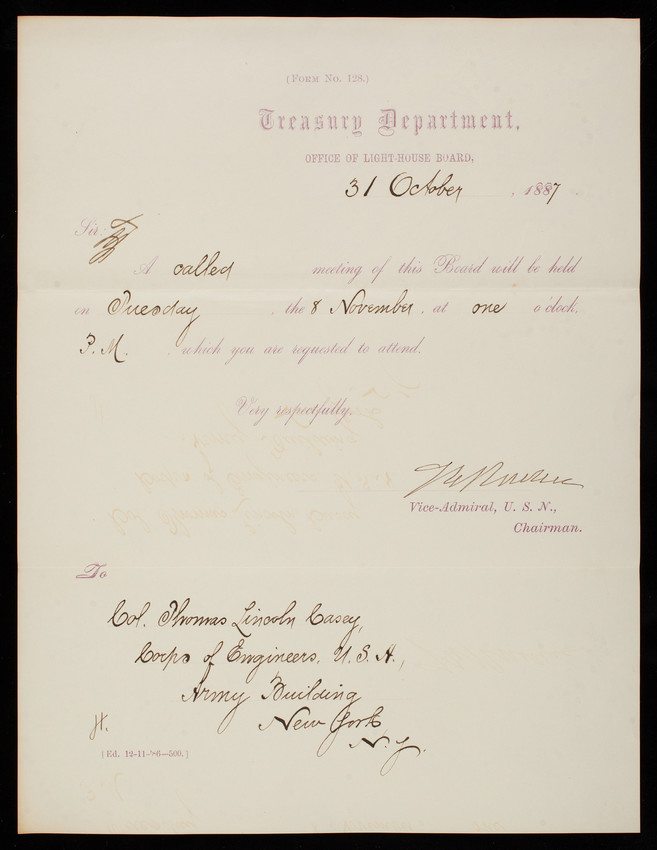 (FORM No. 128.)
Treasury Department,
OFFICE OF LIGHT-HOUSE BOARD,
31 October, 1887
Sir:
A called meeting of this Board will be held
on Tuesday, the 8 November, at one o'clock,
P.M., which you are requested to attend.
Very respectfully,
Vice-Admiral, U. S. N.,
Chairman.
To
Col. Thomas Lincoln Casey,
Corps of Engineers, U. S. A.,
Army Building
New York
N. Y.
H.
(Ed. 12-11-'86—500.)